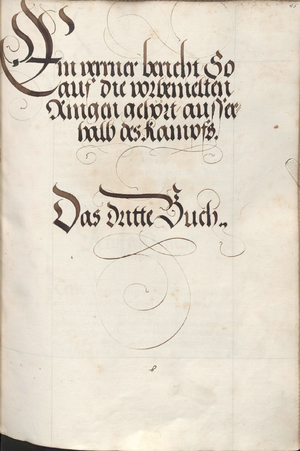 Ein vermer bericht So
auf die vorbemelten
Ringen gehört ausser
halb des Kampfs.
Das dritte Buch..